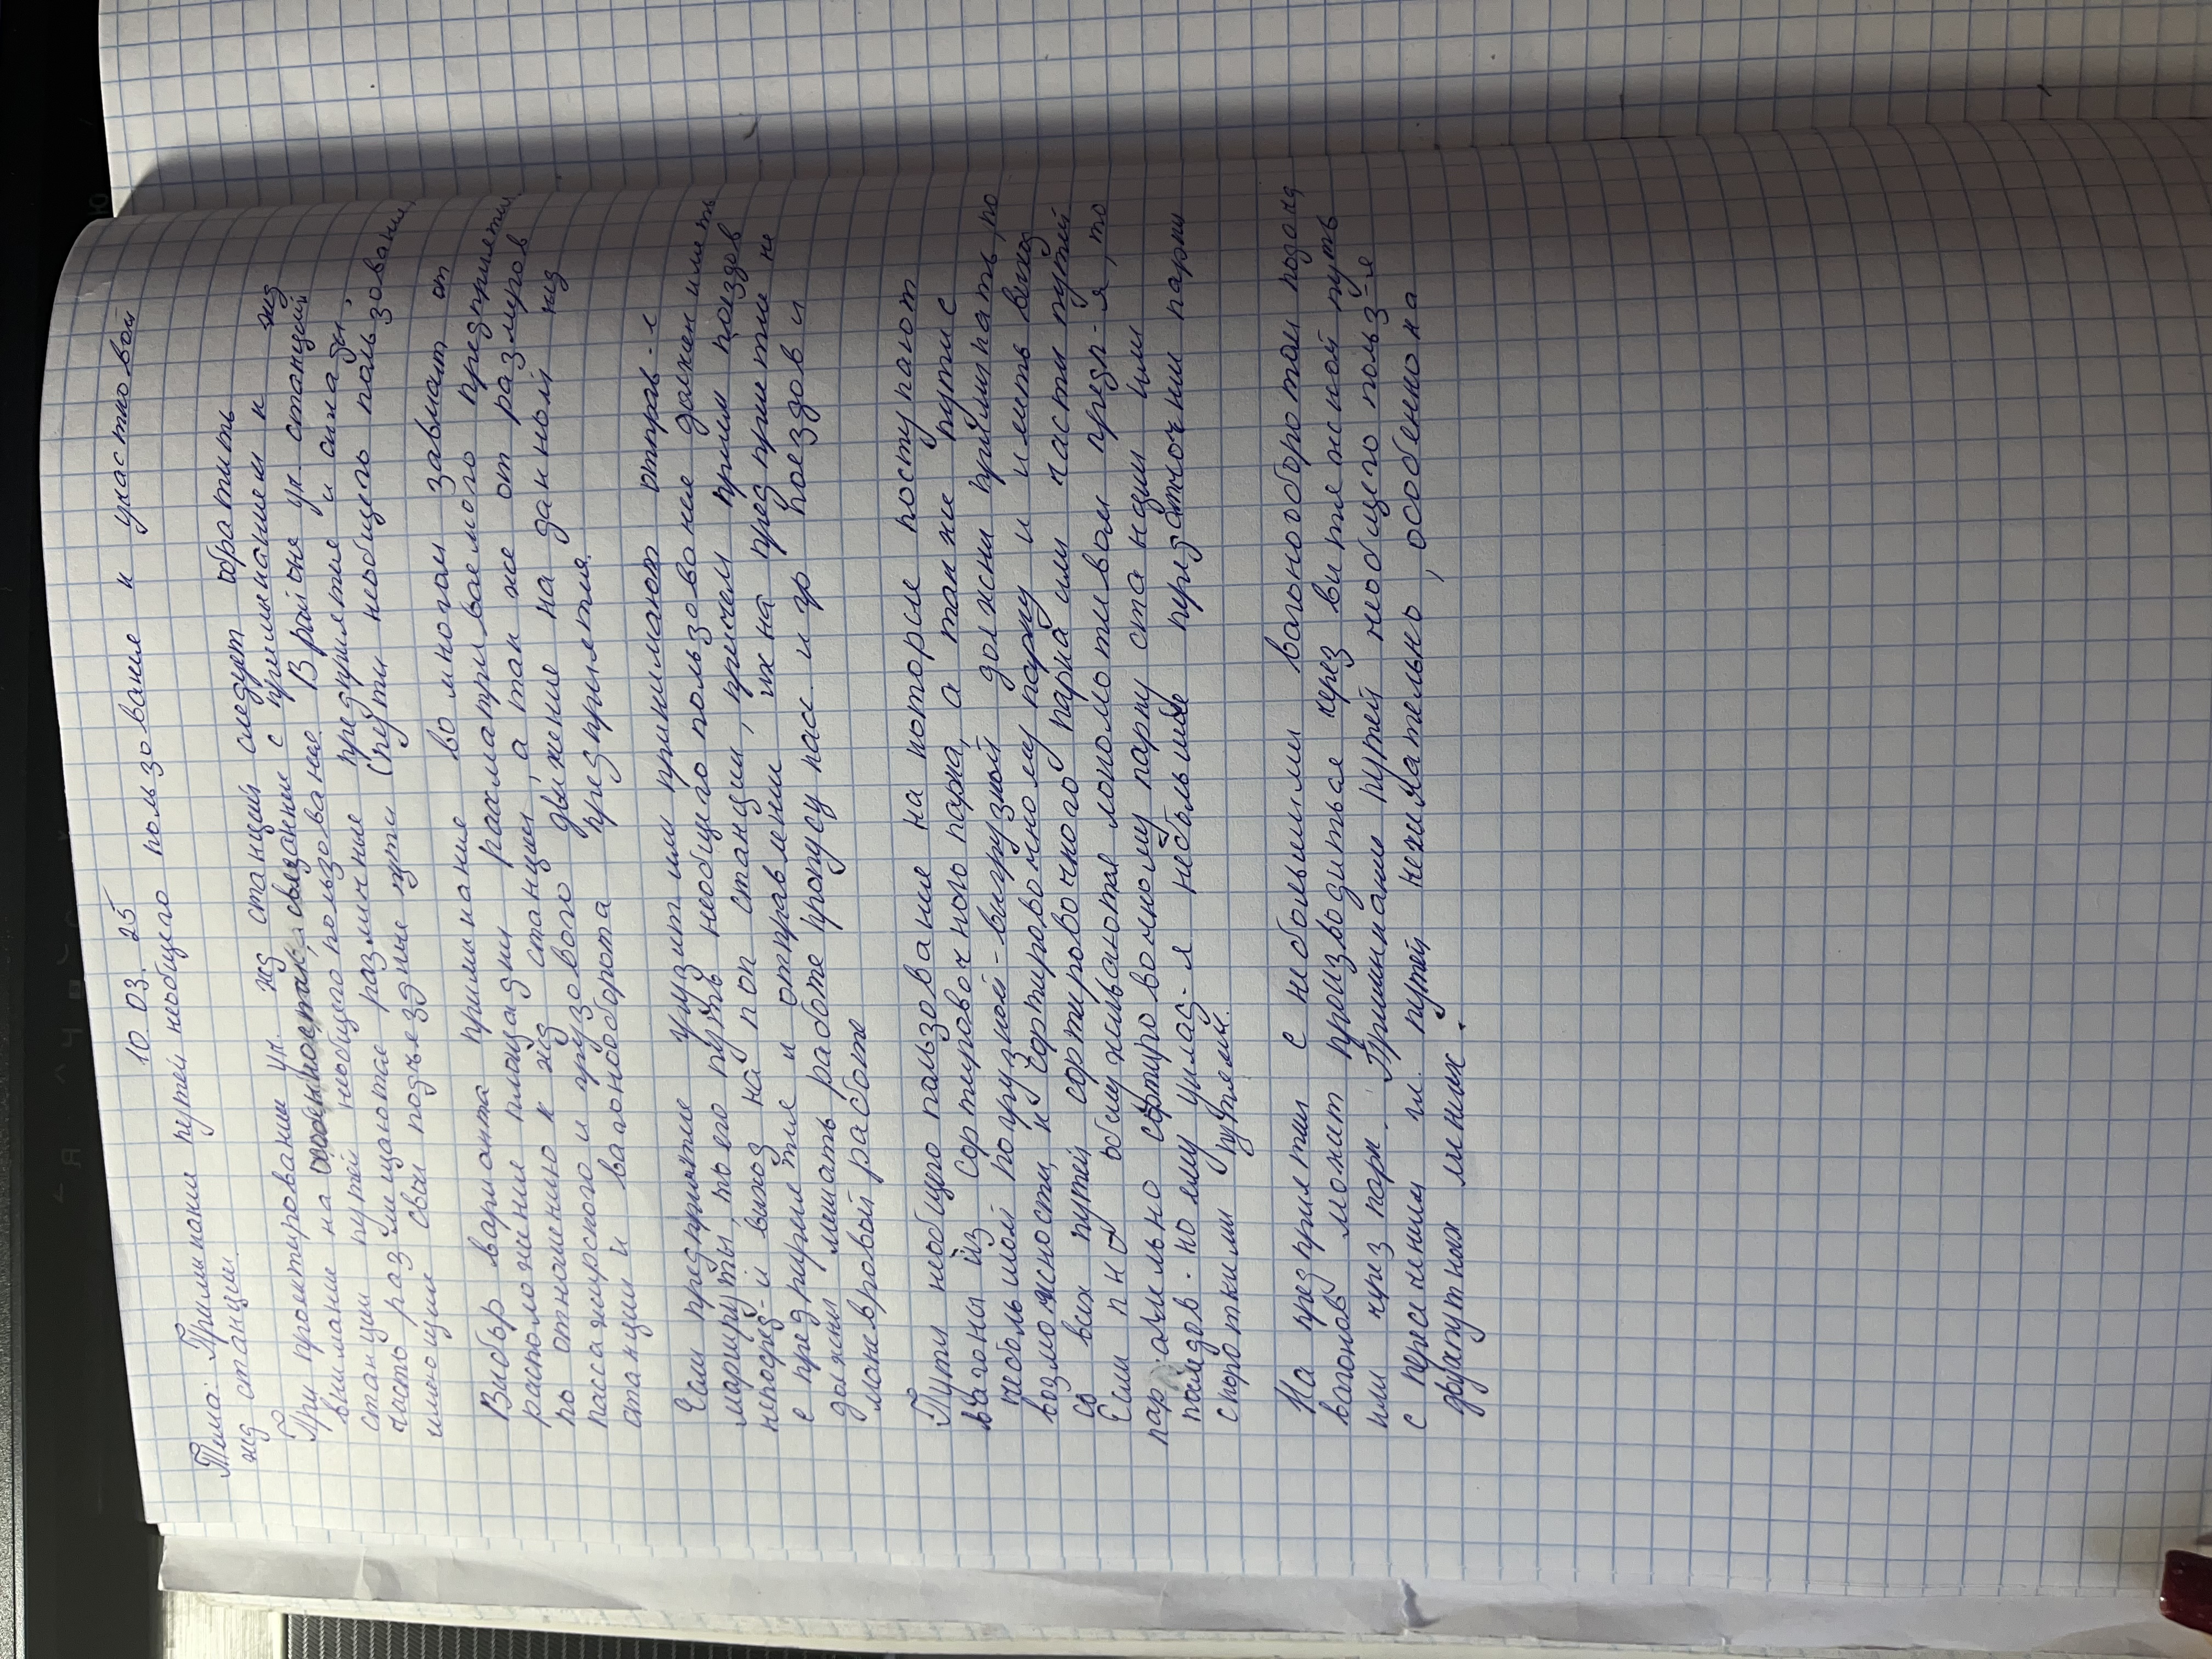 10. 03. 25
Тема: Примыкание путей необщего пользование к участковой
жд станции
При проектировании уч. жд станций следует обратить
внимание на особенности, связание с примыканием к жд
станции путей необщего пользование. В районе уч. станций
часто размещаются различние предприятие и склады,
имеющие свои подъездные пути (пути необщего пользования
Выбор варианта примыкание во многом зависит от
расположение площадки рассматриваемого предприятия
по отношению к жд станции, а так же от размеров
пассажирского и грузового движение на данной жд
станции и вагонооборота предприятия.
Если предприятие грузит или принимают отправ-е
маршруты, то его путь необщего пользование должен иметь
непосред-й выход на поп станции, причем прием поездов
с предприятие и отправлении их на предприятие не
должны мешать работе пропуску пасс и гр поездов и
маневровый работе
Пути необщего пользование на которые поступают
вагоны из сортировочного парка, а также пути с
небольшой погрузкой-выгрузкой должны примикать, по
возможности, к сортировочному парку и иметь выход
со всех путей сортировочного парка или части путей
Если п н обслуживаются локомотивом предп-я, то
параллельно сортировочному парку станции или
позадов. по ему уклад-я небольшые передаточнии парки
с короткими путями.
На предприятии с небольшими вагонооборотом подача
вагонов может производиться через витяжной путь
или через парк. Примикание путей необщего польз-я
с пересечением гл. путей нежелательно, особенно на
двухпутных линиях.